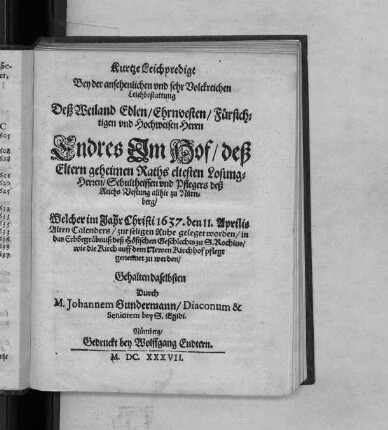 Kurtze Leichpredigt
Bey der ansehenlichen und sehr Volckreichen
Leichbestattung
Deß Weiland Edlen/ Ehrnvesten/ Fürsich-
tigen und Hochweisen Herrn
Endres Im Hof/ deß
Eltern geheimen Raths eltesten Losung-
Herren/ Schultheissen und Pflegers deß
Reichs Vestung allhie zu Nürn-
berg/
Welcher im Jahr Christi 1637. den 11. Aprilis
Alten Calenders/ zur seligen Ruhe geleget worden/ in
das Erbbegräbnuß deß Hofischen Geschlechts zu S. Rochius/
wie die Kirch auff dem Newen Kirchhof pflegt
genennet zu werden/
Gehalten daselbsten
Durch
M. Johannem Gundermann/ Diaconum &
Seniorem bey S. Egidi.
Nürnberg/
Gedruckt bey Wolffgang Endtern.
M. DC. XXXVII.